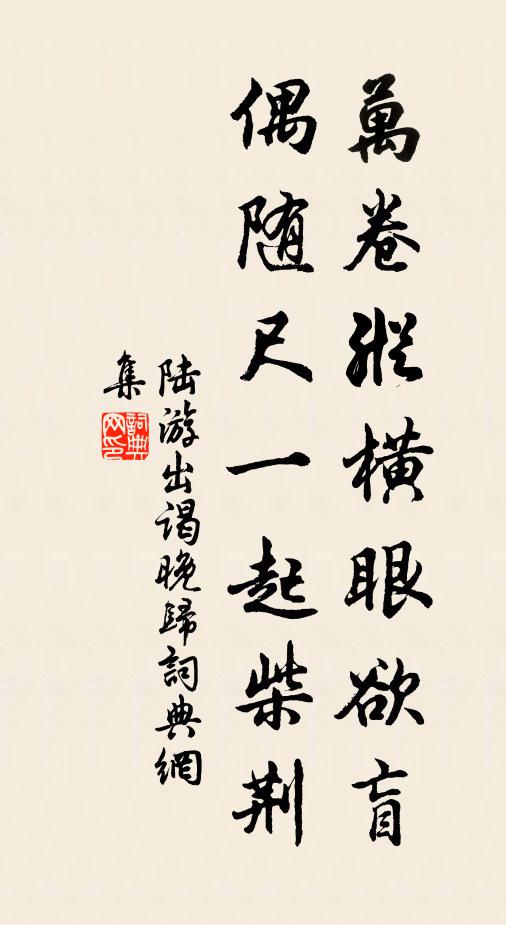 萬卷縱橫眼欲盲
偶隨尺一起柴荆
陸游出謁晚歸詞典網
集
詞典
网印